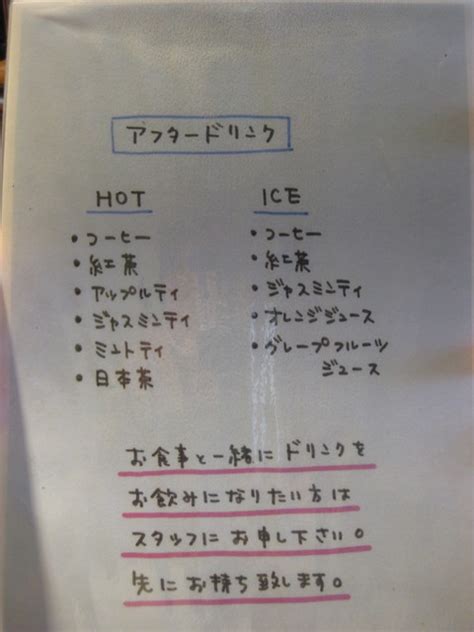 アフタードリンク
HOT
・コーヒー
・紅茶
・アップルティ
・ジャスミンティ
・ミントティ
・日本茶
ICE
・コーヒー
・紅茶
・ジャスミンティ
・オレンジジュース
・グレープフルーツ
ジュース
お食事と一緒にドリンクを
お飲みになりたい方は
スタッフにお申し下さい。
先にお持ち致します。